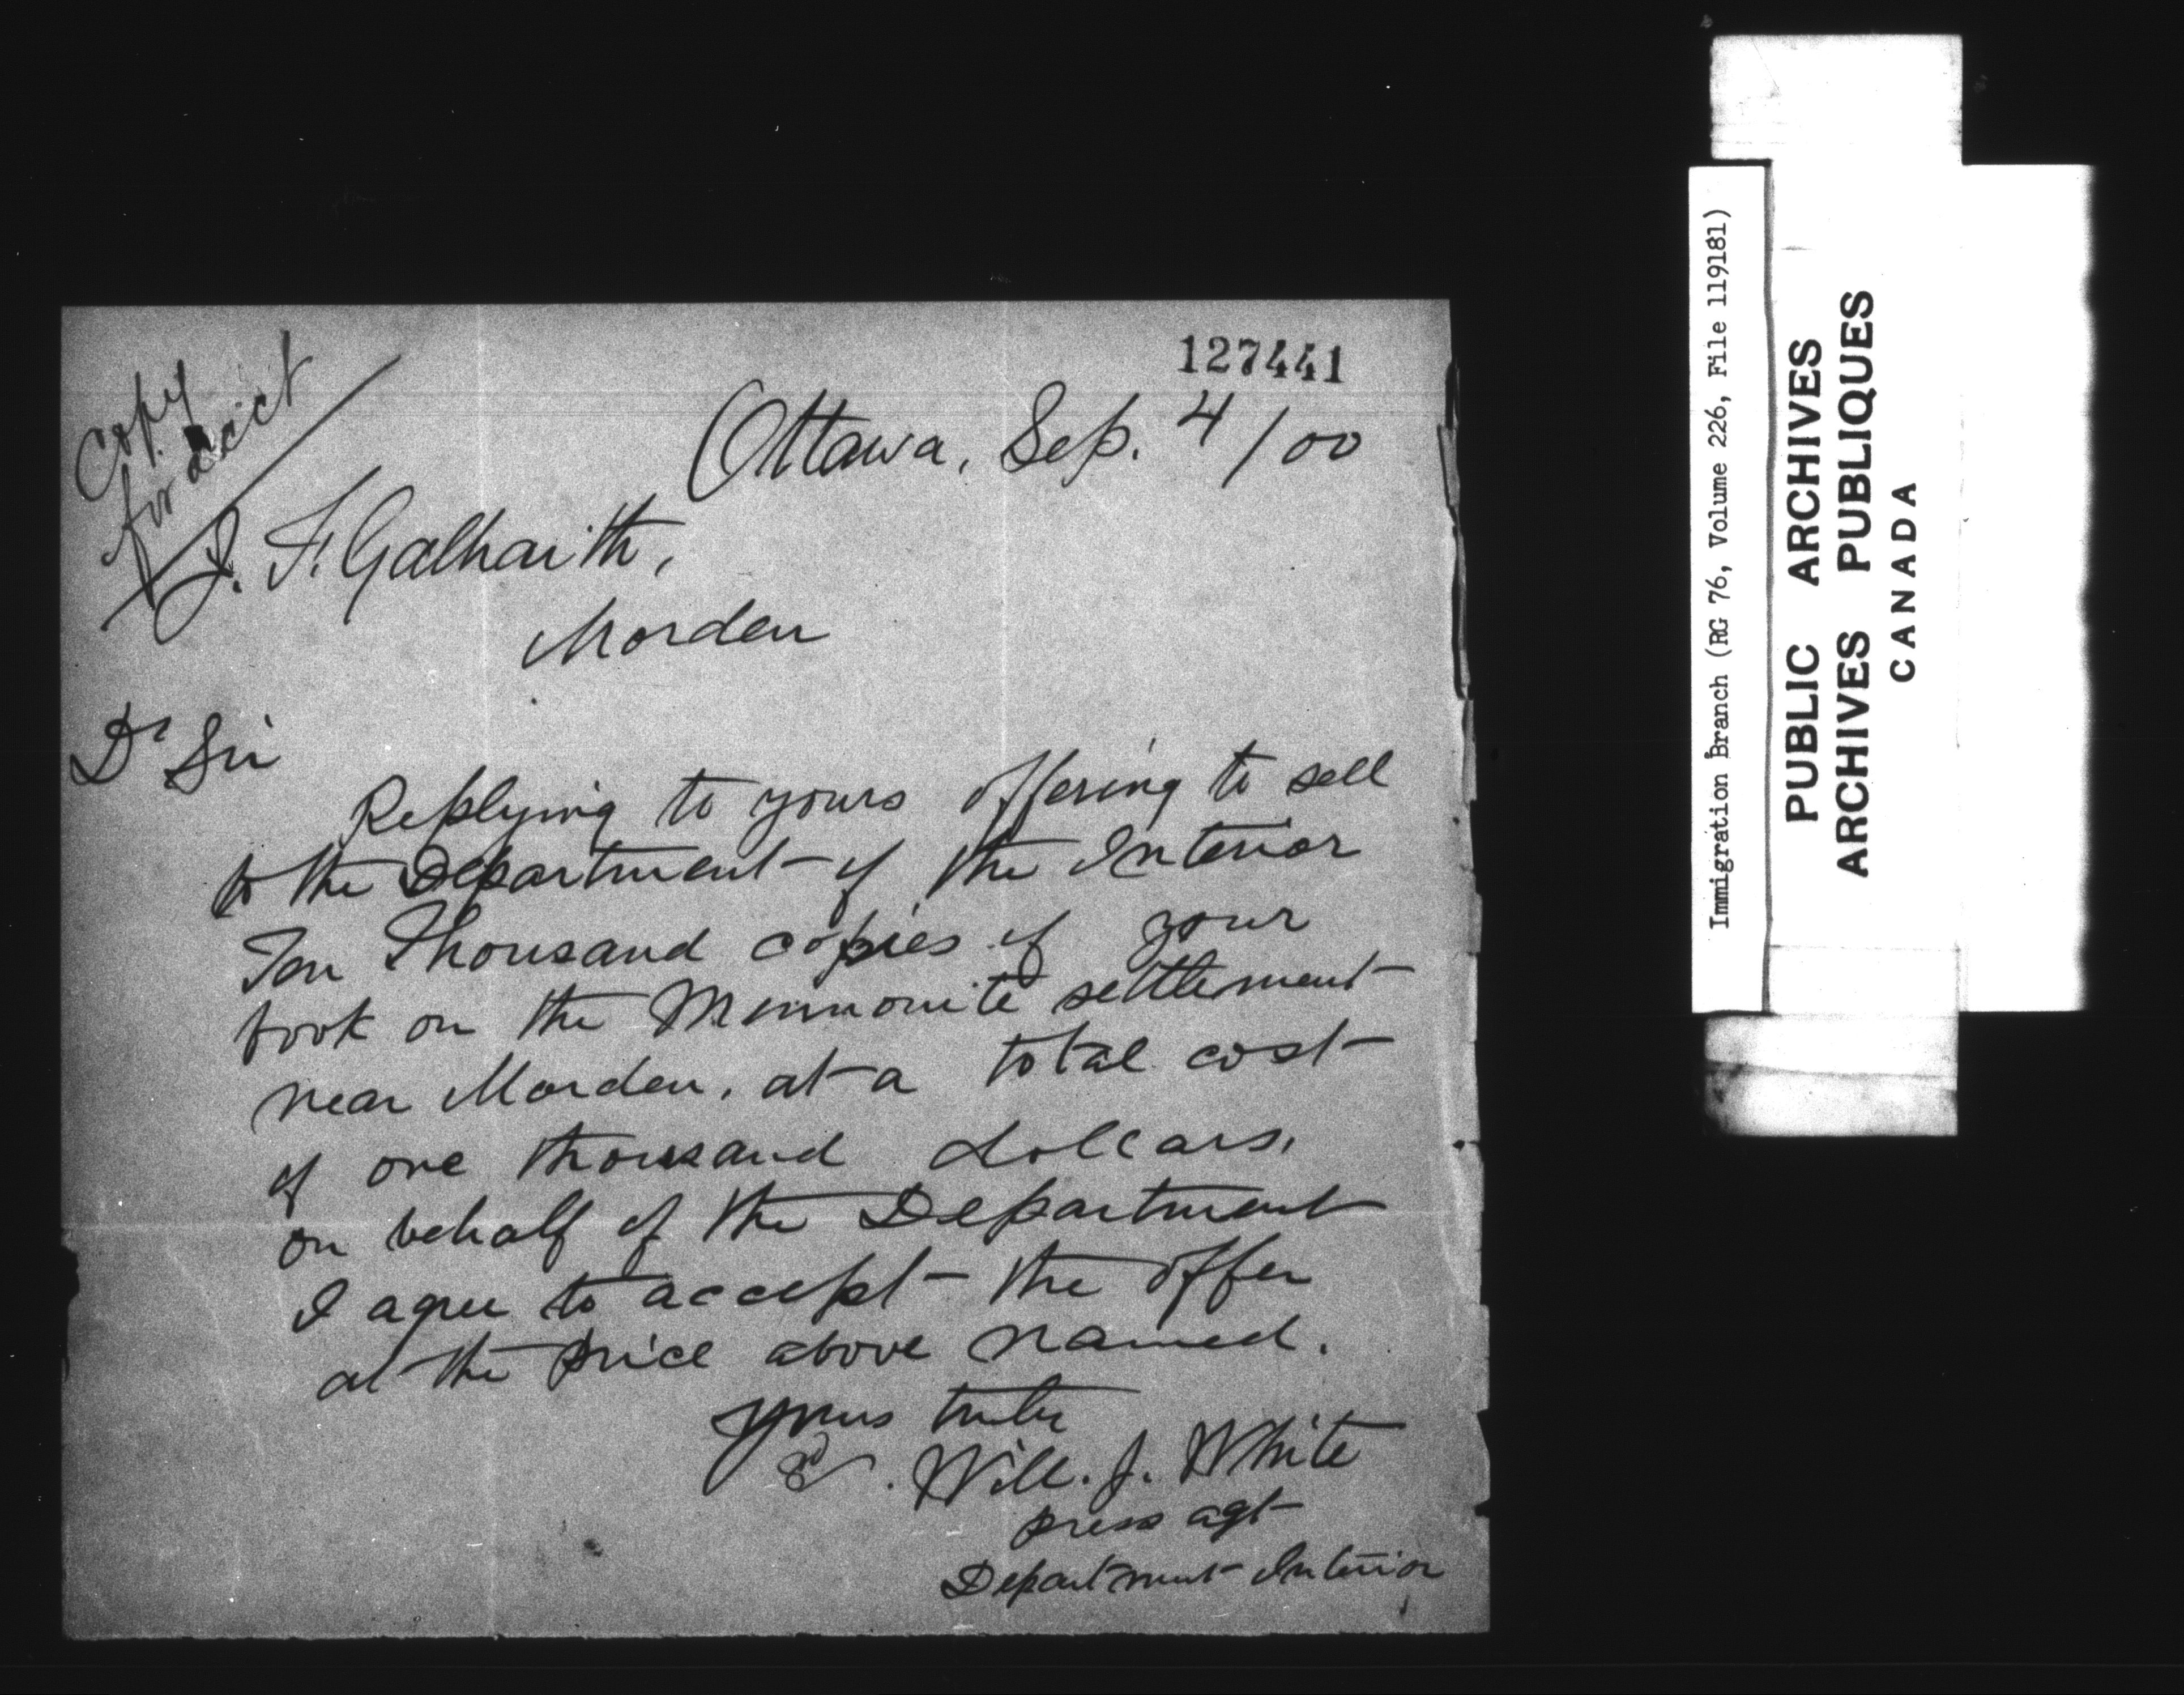 127441
Copy
for acct
Ottawa, Sep. 4/00
J. F. Galbraith,
Morden
Dr Sir
Replying to yours offering to sell
to the Department of the Interior
Ten Thousand copies of your
book on the Mennonite settlement
near Morden, at a total cost
of one thousand dollars,
on behalf of the Department
I agree to accept the offer
at the price above named.
yours truly
Sd. Will. J. White
press agt
Department Interior
Immigration Branch (RG 76, Volume 226, File 119181)
PUBLIC ARCHIVES
ARCHIVES PUBLIQUES
CANADA